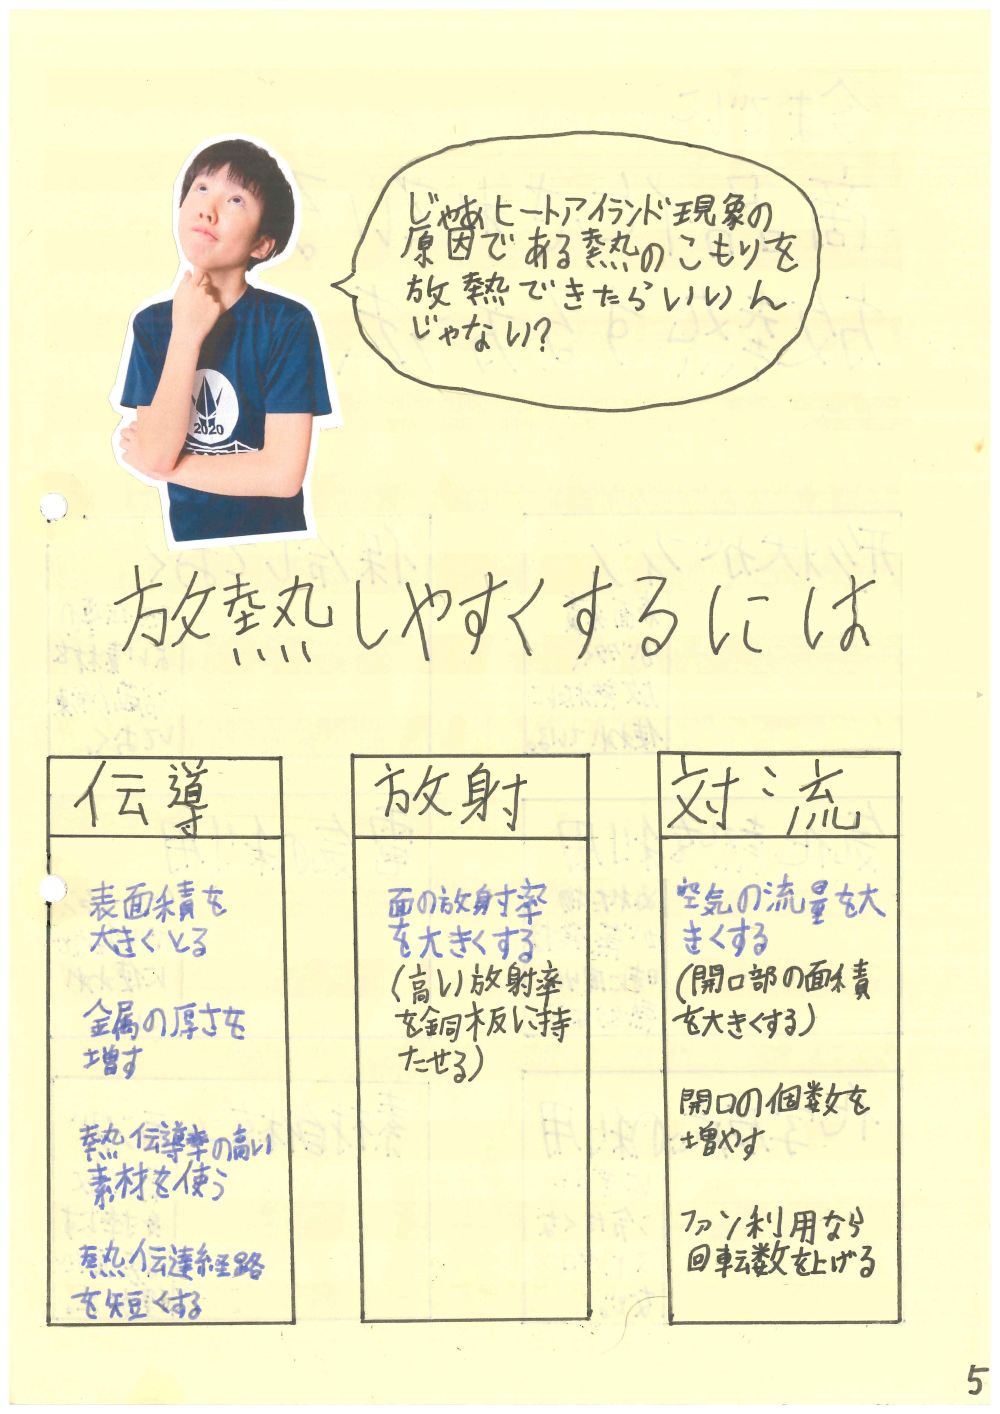 じゃあヒートアイランド現象の
原因である熱のこもりを
放熱できたらいいん
じゃない?
2020
放熱しやすくするには
伝導
表面積を
大きくとる
金属の厚さを
増す
熱伝導率の高い
素材を使う
熱伝達経路
を短くする
放射
面の放射率
を大きくする
(高い放射率
を銅板に持
たせる)
対流
空気の流量を大
きくする
(開口部の面積
を大きくする)
開口の個数を
増やす
ファン利用なら
回転数を上げる
5